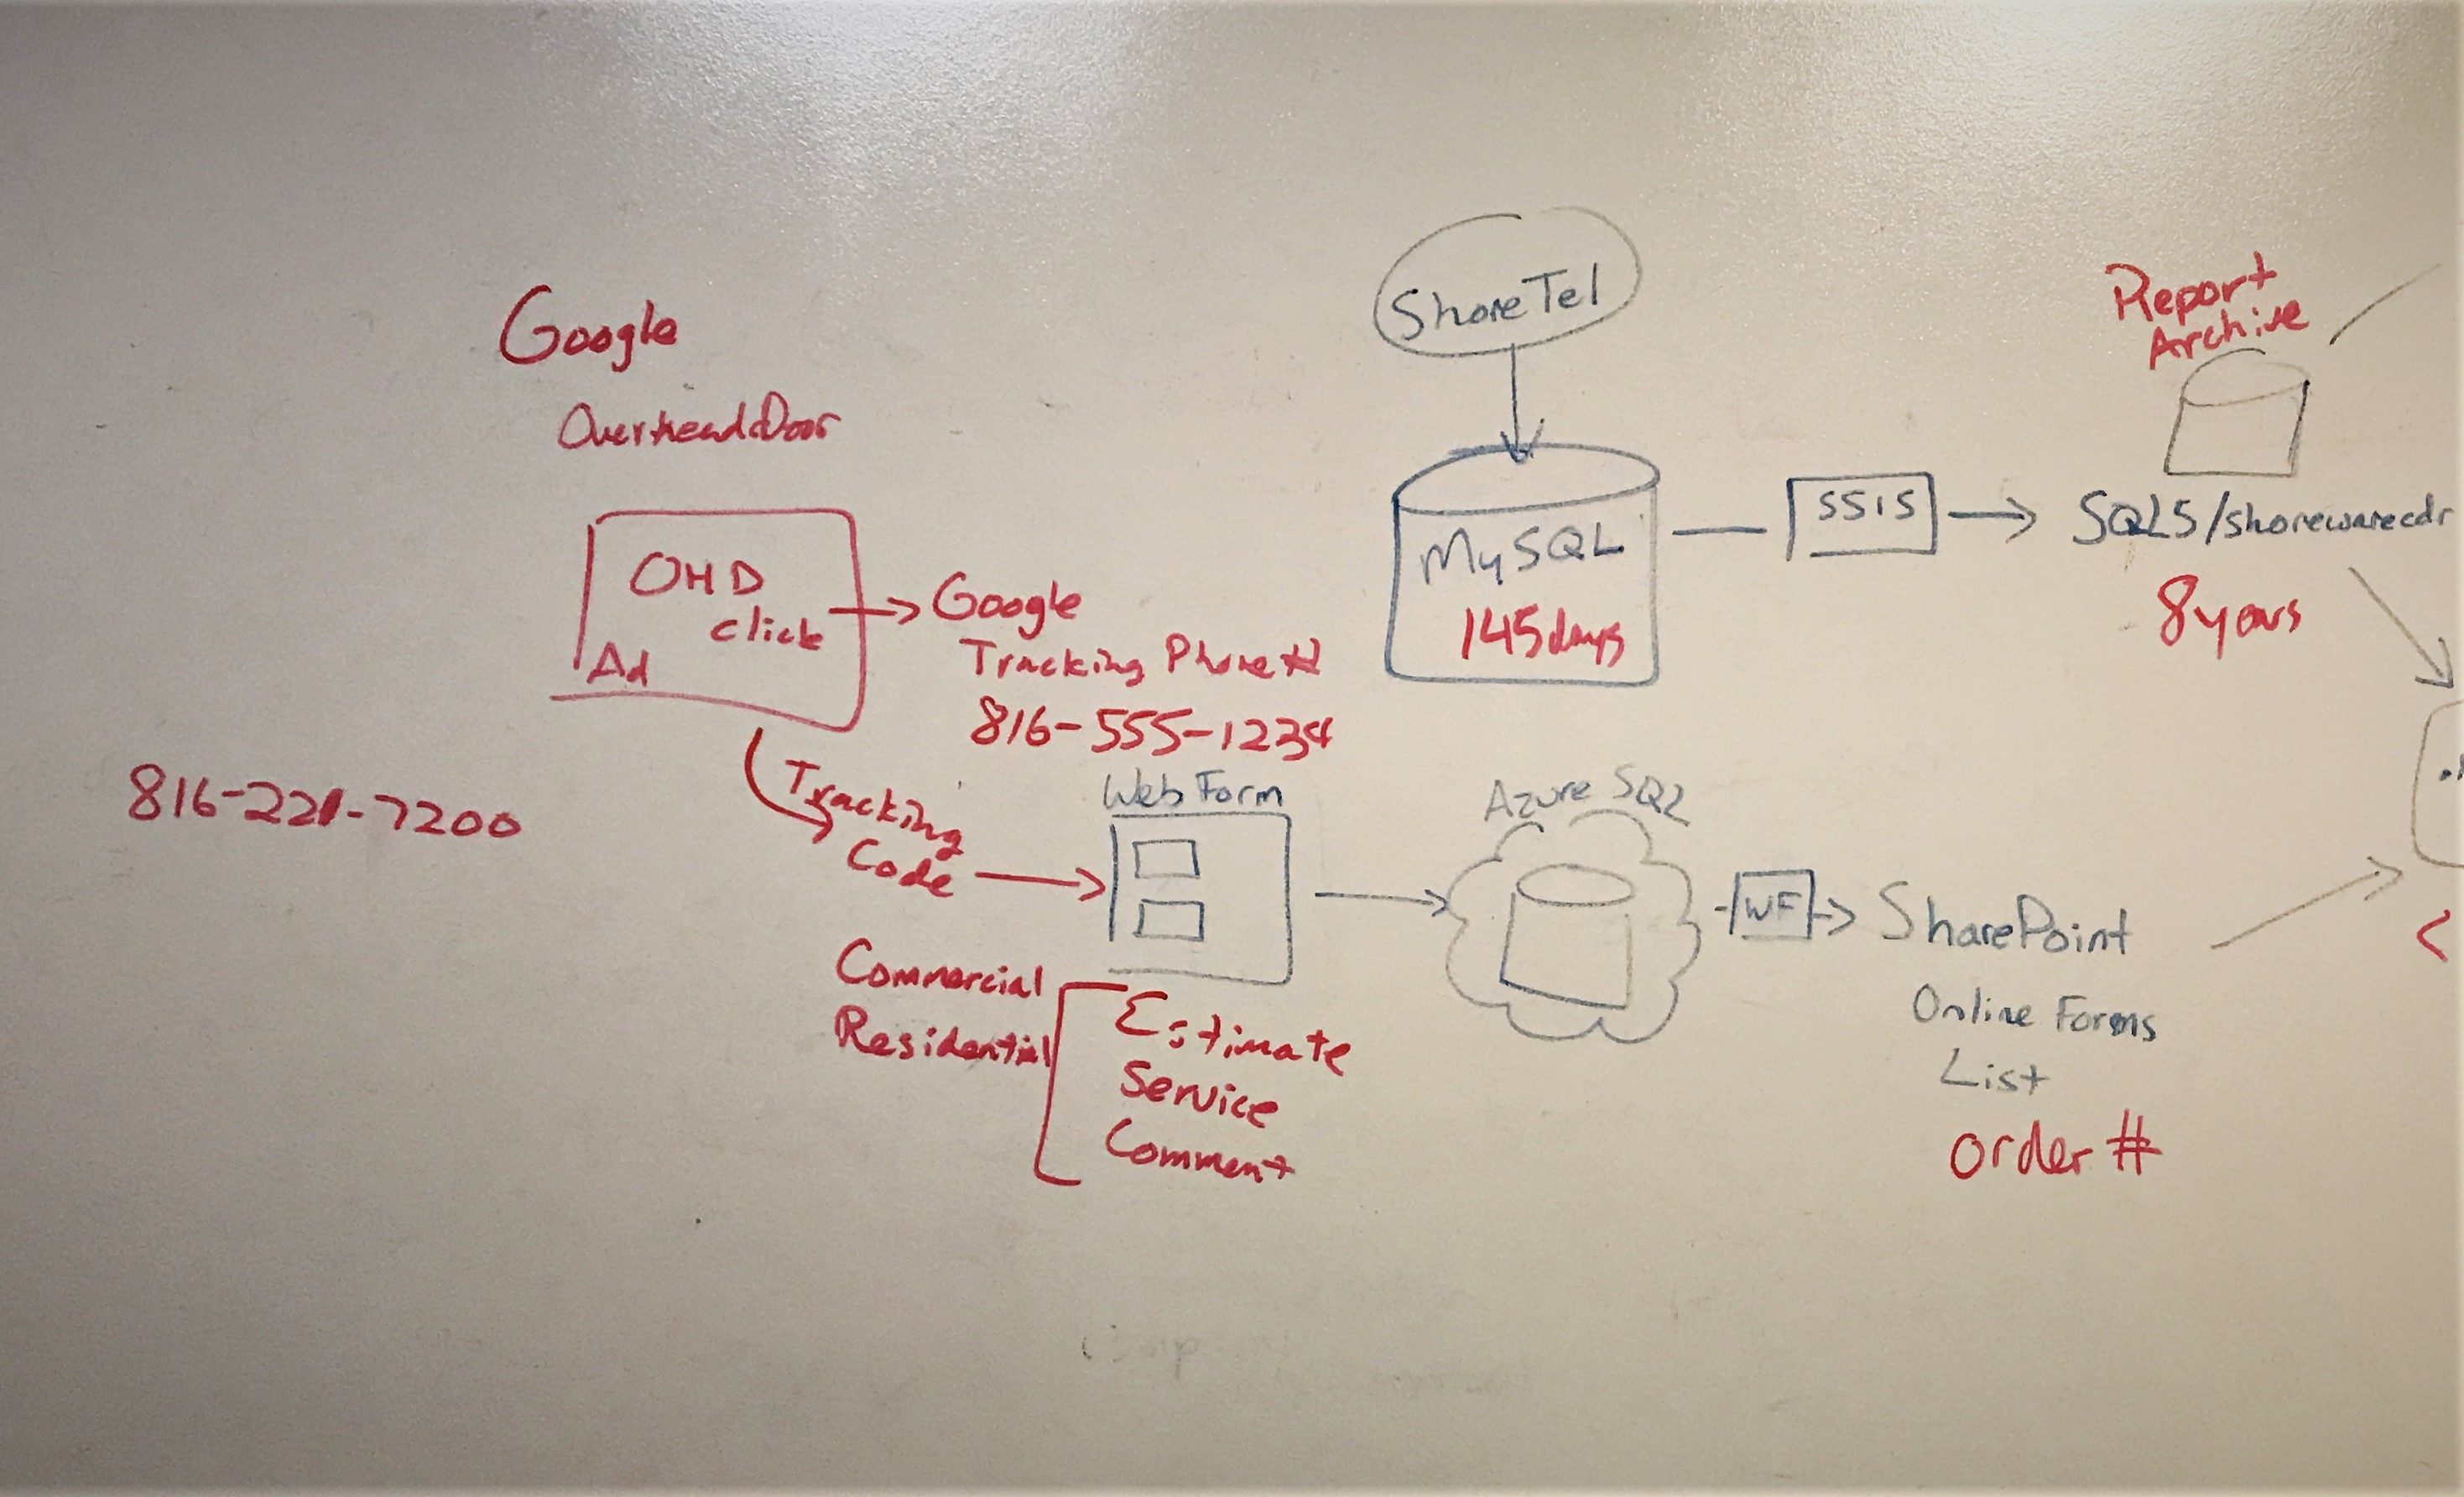 Google
OverheadDoor
OHD
click
Ad
Google
Tracking Phone #
816-555-1234
816-221-7200
Tracking
Code
Web Form
Commercial
Residential
Estimate
Service
Comment
ShoreTel
MySQL
145 days
SSIS
Report
Archive
SQL5/shorewarecdr
8 years
Azure SQL
WF
SharePoint
Online Forms
List
order #